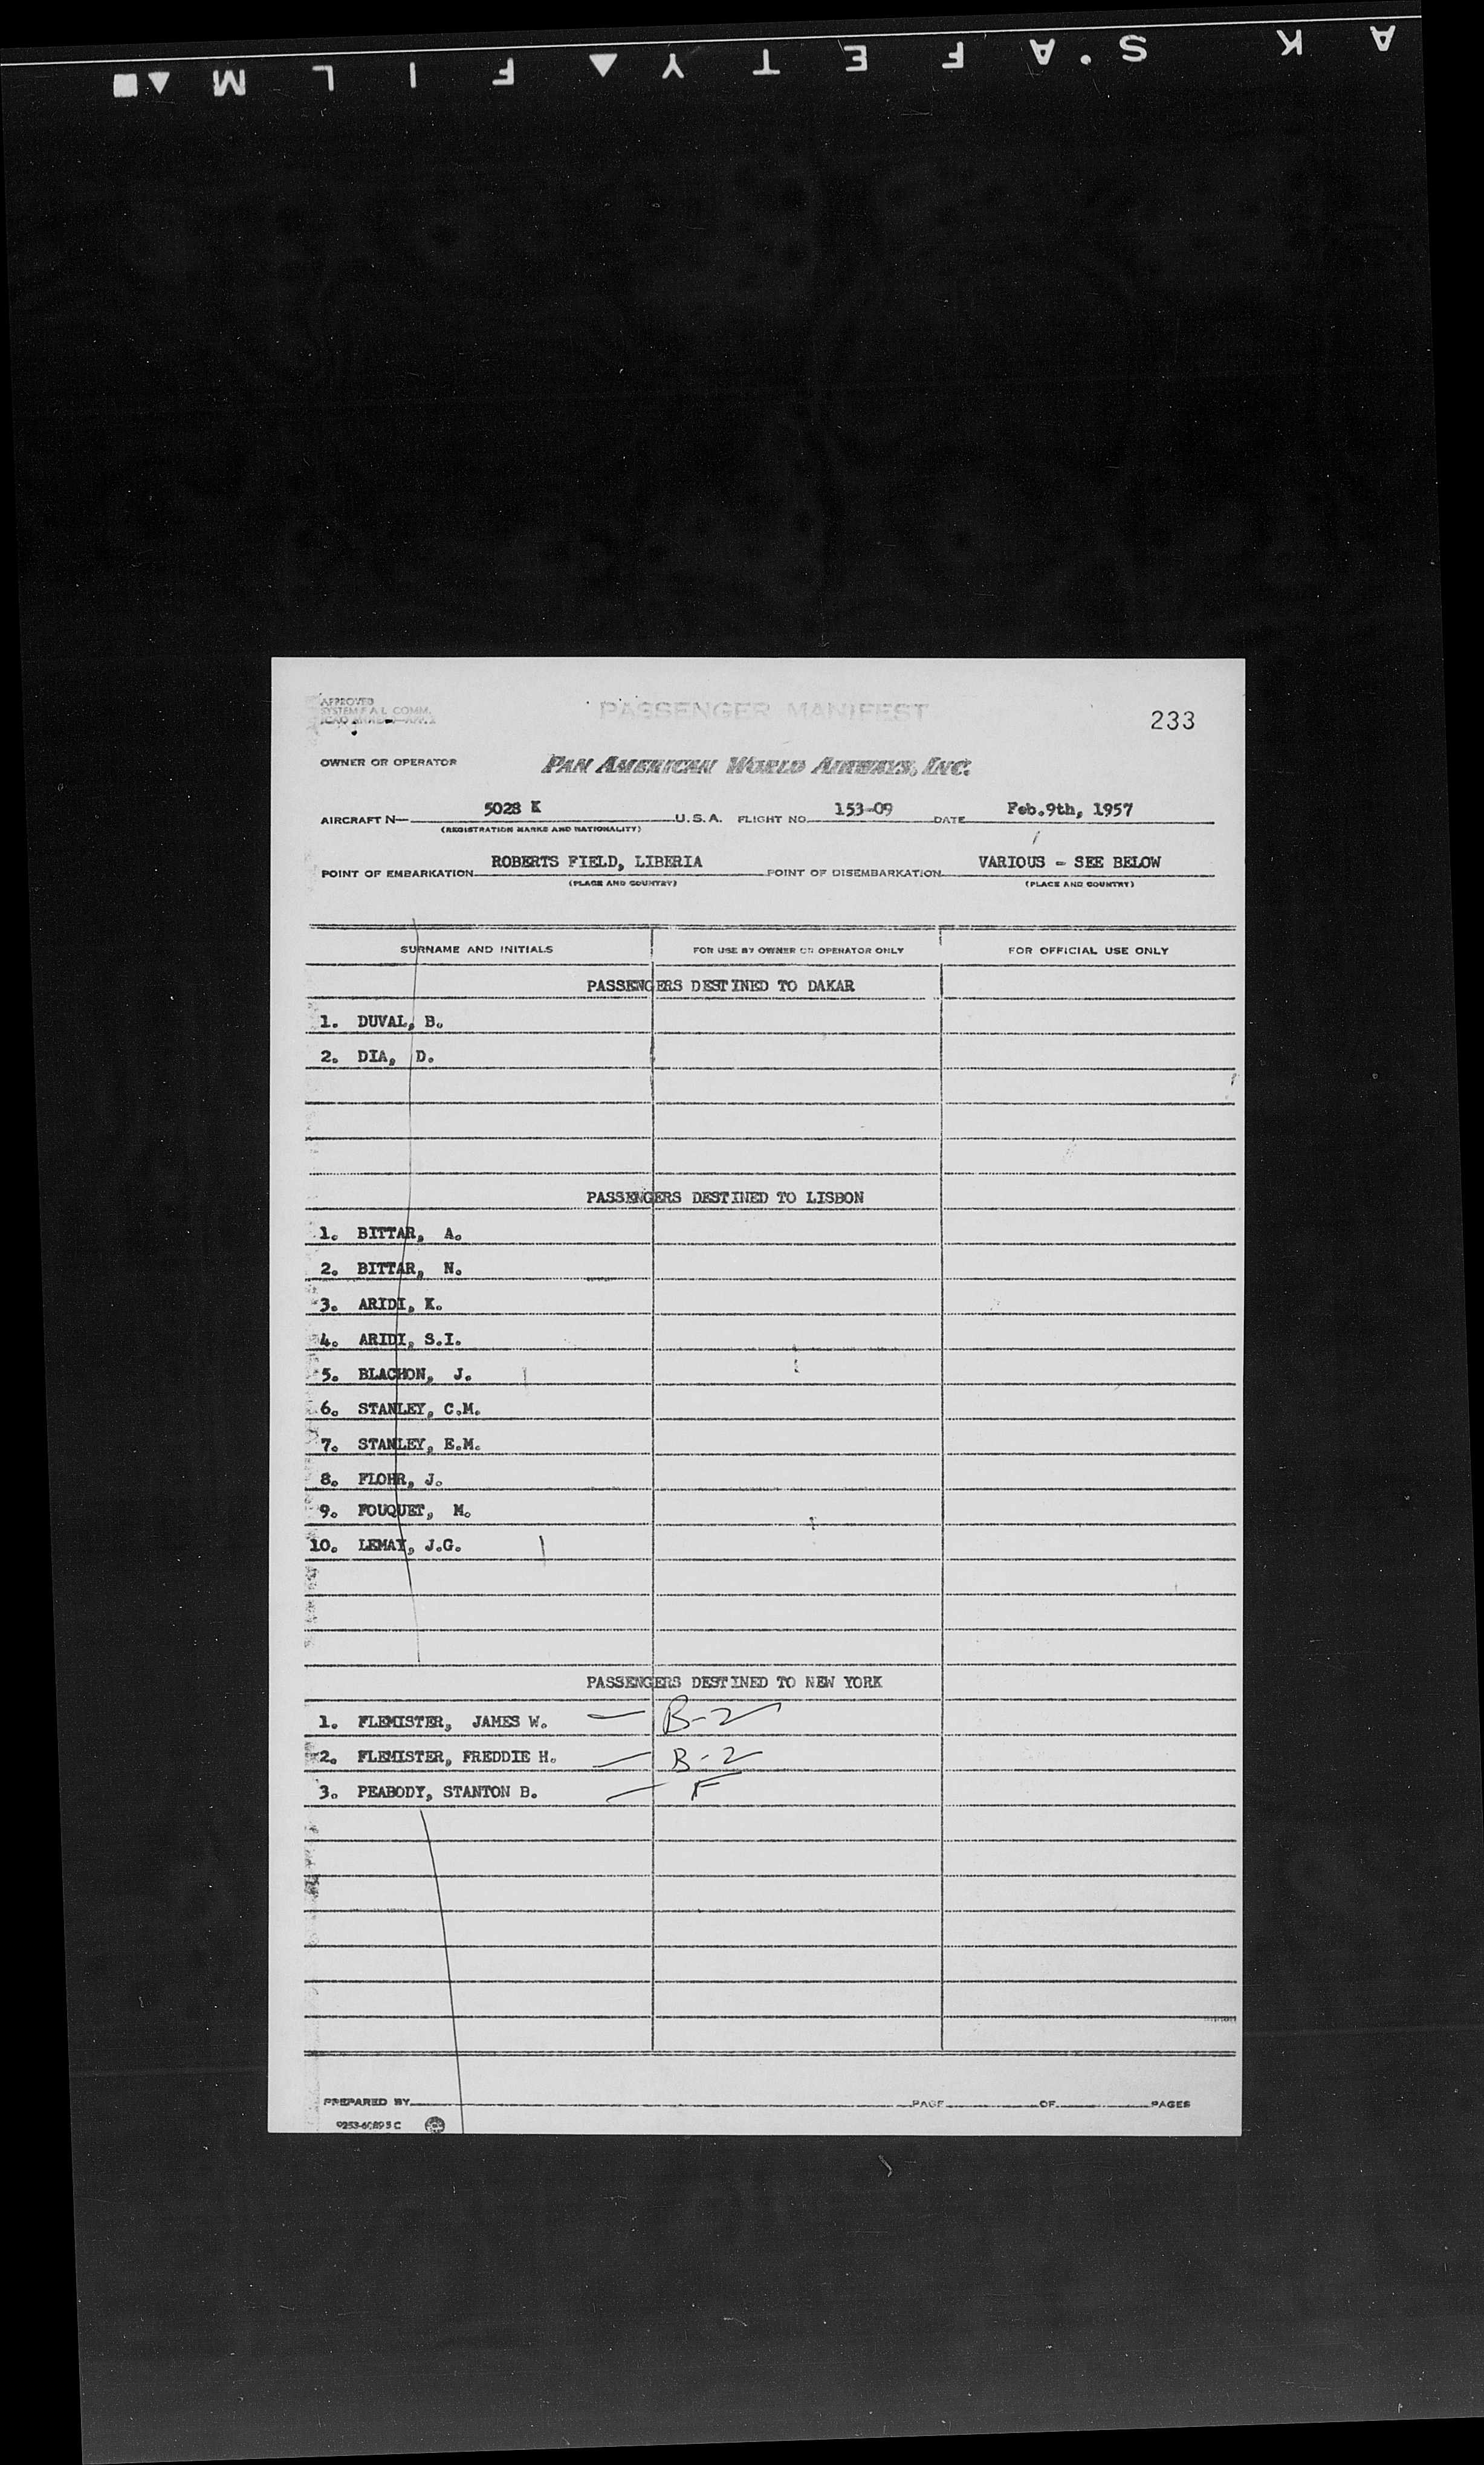 K S.A F E T Y ▲ F I L M ▲■
APPROVED
SYSTEM F A L COMM.
PASSENGER MANIFEST
233
OWNER OR OPERATOR PAN AMERICAN WORLD AIRWAYS, INC.
AIRCRAFT N— 5028 K U.S.A. FLIGHT NO. 153-09 DATE Feb.9th, 1957
(REGISTRATION MARKS AND NATIONALITY)
POINT OF EMBARKATION ROBERTS FIELD, LIBERIA POINT OF DISEMBARKATION VARIOUS - SEE BELOW
(PLACE AND COUNTRY) (PLACE AND COUNTRY)
SURNAME AND INITIALS FOR USE BY OWNER OR OPERATOR ONLY FOR OFFICIAL USE ONLY
PASSENGERS DESTINED TO DAKAR
1. DUVAL, B.
2. DIA, D.
PASSENGERS DESTINED TO LISBON
1. BITTAR, A.
2. BITTAR, N.
3. ARIDI, K.
4. ARIDI, S.I.
5. BLACHON, J.
6. STANLEY, C.M.
7. STANLEY, E.M.
8. FLOHR, J.
9. FOUQUET, M.
10. LEMAY, J.G.
PASSENGERS DESTINED TO NEW YORK
1. FLEMISTER, JAMES W. — B-2
2. FLEMISTER, FREDDIE H. — B-2
3. PEABODY, STANTON B. — F
PREPARED BY PAGE OF PAGES